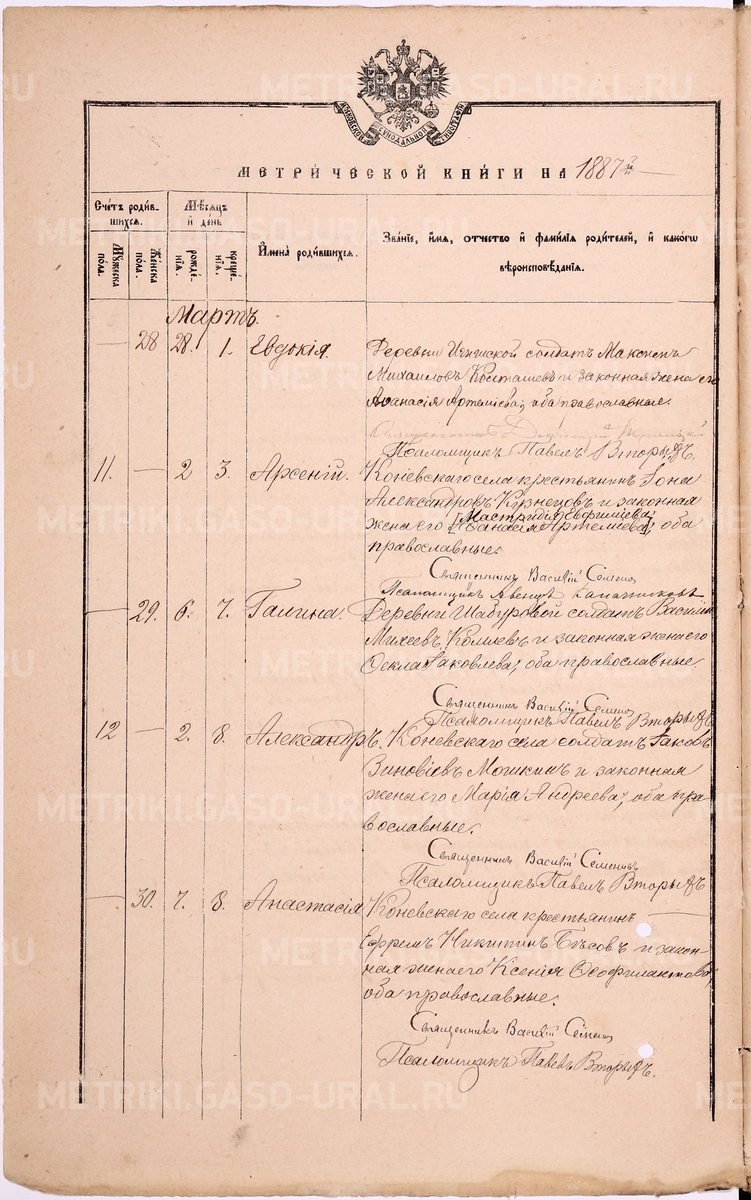 МЕТРИЧЕСКОЙ КНИГИ НА 1887 й
Счетъ родив-
шихся.
Мужеска
пола.
Женска
пола.
Мѣсяцъ
и день
рожде-
нія.
креще-
нія.
Имена родившихся.
Званіе, имя, отчество и фамилія родителей, и какого
вѣроисповѣданія.
Мартъ.
— 28 28. 1. Евдокія. Деревни солдатъ Максимъ
Михаиловъ и законная жена его
Аѳанасія Артеміева, оба православные.
Псаломщикъ Павелъ Вторыхъ
11. — 2 3. Арсеній. Коневскаго села крестьянинъ Іона
Александровъ Кузнецовъ и законная
жена его [Аѳанасія Артеміева], оба
Мастридія Евфиміева
православные.
Священникъ Василій Семенов
Псаломщикъ
— 29. 6. 7. Галина. Деревни Шабуровой солдатъ Василій
Михеевъ и законная жена его
Ѳекла Іаковлева, оба православные.
Священникъ Василій Семенов
Псаломщикъ Павелъ Вторыхъ
12 — 2. 8. Александръ. Коневскаго села солдатъ Іаковъ
Зиновіевъ Мошкинъ и законная
жена его Марія Андреева, оба пра-
вославные.
Священникъ Василій Семенов
Псаломщикъ Павелъ Вторыхъ
— 30. 7. 8. Анастасія. Коневскаго села крестьянинъ —
Ефремъ Никитинъ Бѣсовъ и закон-
ная жена его Ксенія Ѳеофилактова,
оба православные.
Священникъ Василій Семенов
Псаломщикъ Павелъ Вторыхъ.
METRIKI.GASO-URAL.RU